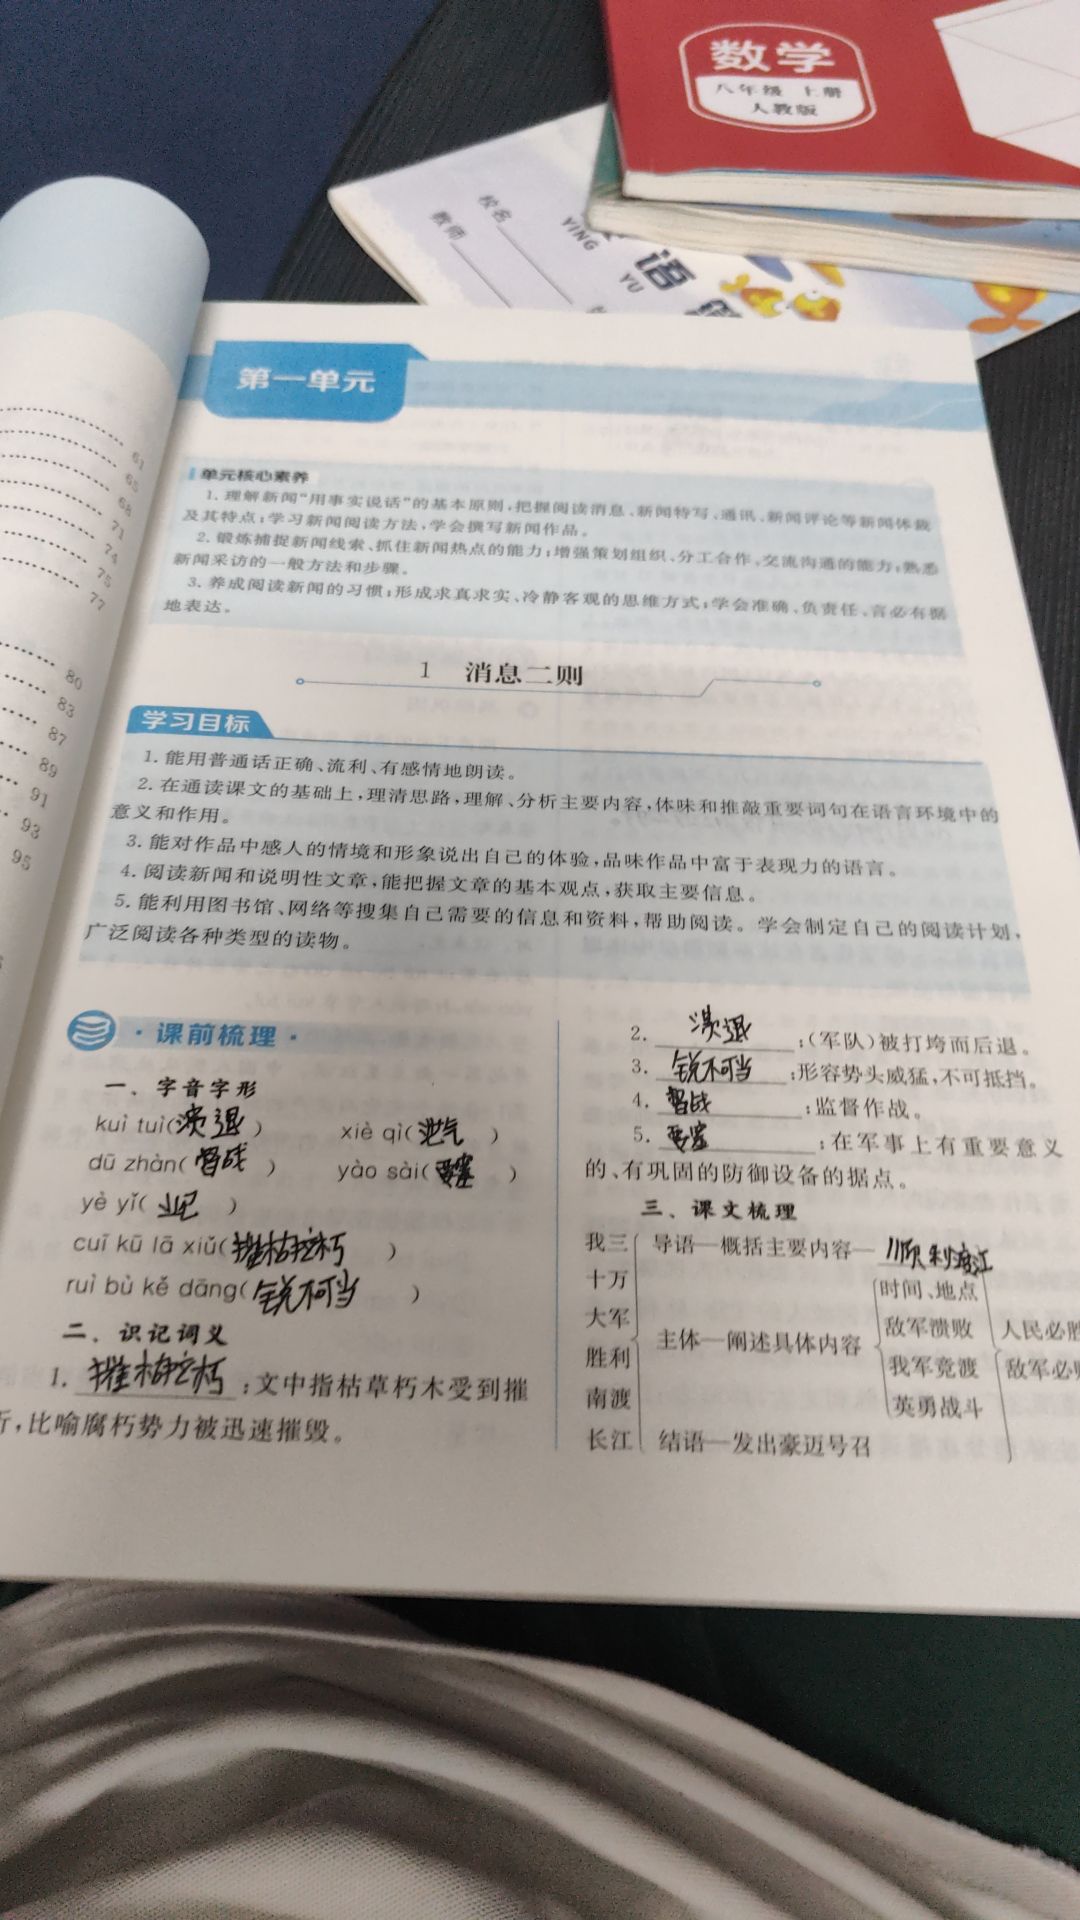 数学
八年级 上册
人教版
校名
教师
YING
YU
语
61
65
68
71
74
75
77
80
83
87
89
91
93
95
第一单元
单元核心素养
1. 理解新闻“用事实说话”的基本原则,把握阅读消息、新闻特写、通讯、新闻评论等新闻体裁
及其特点;学习新闻阅读方法,学会撰写新闻作品。
2. 锻炼捕捉新闻线索、抓住新闻热点的能力;增强策划组织、分工合作、交流沟通的能力;熟悉
新闻采访的一般方法和步骤。
3. 养成阅读新闻的习惯;形成求真求实、冷静客观的思维方式;学会准确、负责任、言必有据
地表达。
1 消息二则
学习目标
1. 能用普通话正确、流利、有感情地朗读。
2. 在通读课文的基础上,理清思路,理解、分析主要内容,体味和推敲重要词句在语言环境中的
意义和作用。
3. 能对作品中感人的情境和形象说出自己的体验,品味作品中富于表现力的语言。
4. 阅读新闻和说明性文章,能把握文章的基本观点,获取主要信息。
5. 能利用图书馆、网络等搜集自己需要的信息和资料,帮助阅读。学会制定自己的阅读计划,
广泛阅读各种类型的读物。
·课前梳理·
一、字音字形
kuì tuì(溃退) xiè qì(泄气)
dū zhàn(督战) yào sài(要塞)
yè yǐ(业已)
cuī kū lā xiǔ(摧枯拉朽)
ruì bù kě dāng(锐不可当)
二、识记词义
1. 摧枯拉朽:文中指枯草朽木受到摧
折,比喻腐朽势力被迅速摧毁。
2. 溃退:(军队)被打垮而后退。
3. 锐不可当:形容势头威猛,不可抵挡。
4. 督战:监督作战。
5. 要塞:在军事上有重要意义
的、有巩固的防御设备的据点。
三、课文梳理
我三
十万
大军
胜利
南渡
长江
导语—概括主要内容—顺利渡江
主体—阐述具体内容
时间、地点
敌军溃败
我军竞渡
英勇战斗
结语—发出豪迈号召
人民必胜
敌军必败